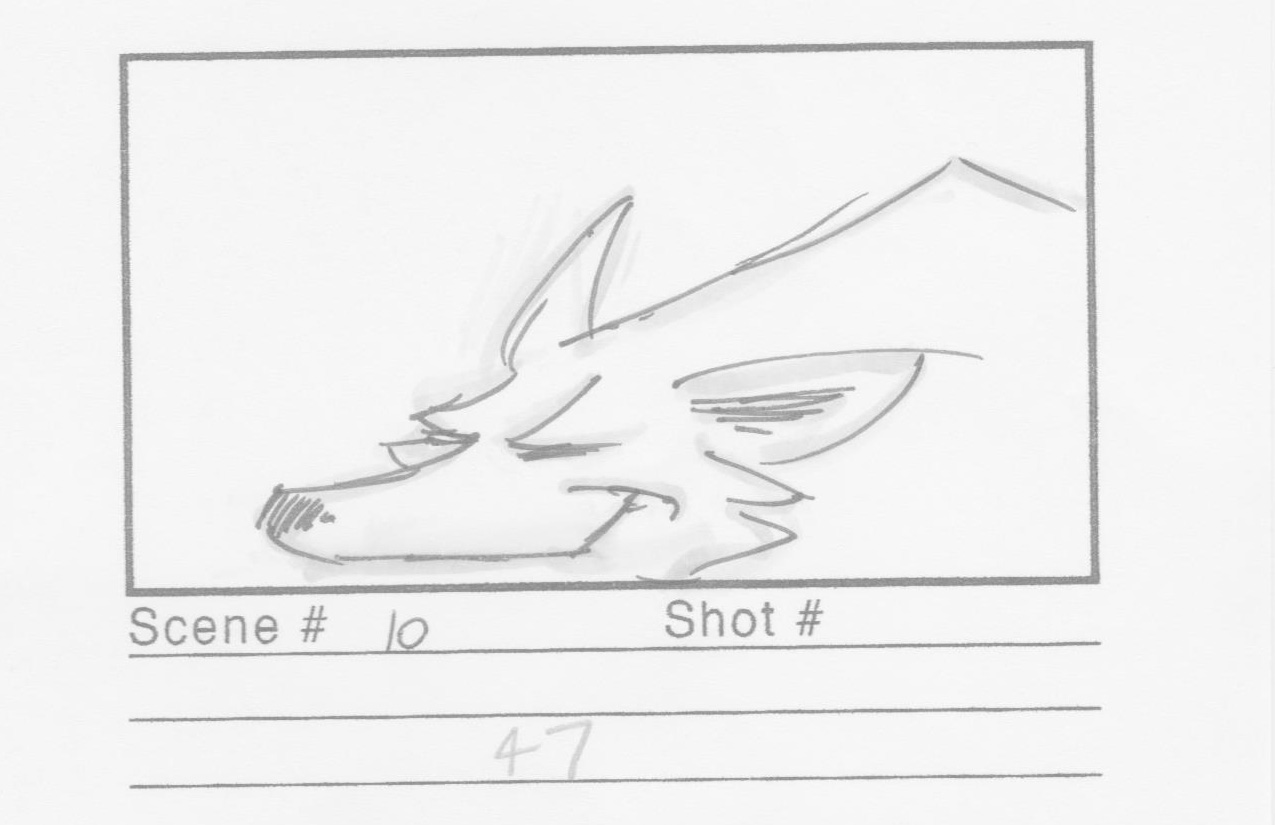 Scene # 10 Shot #
47